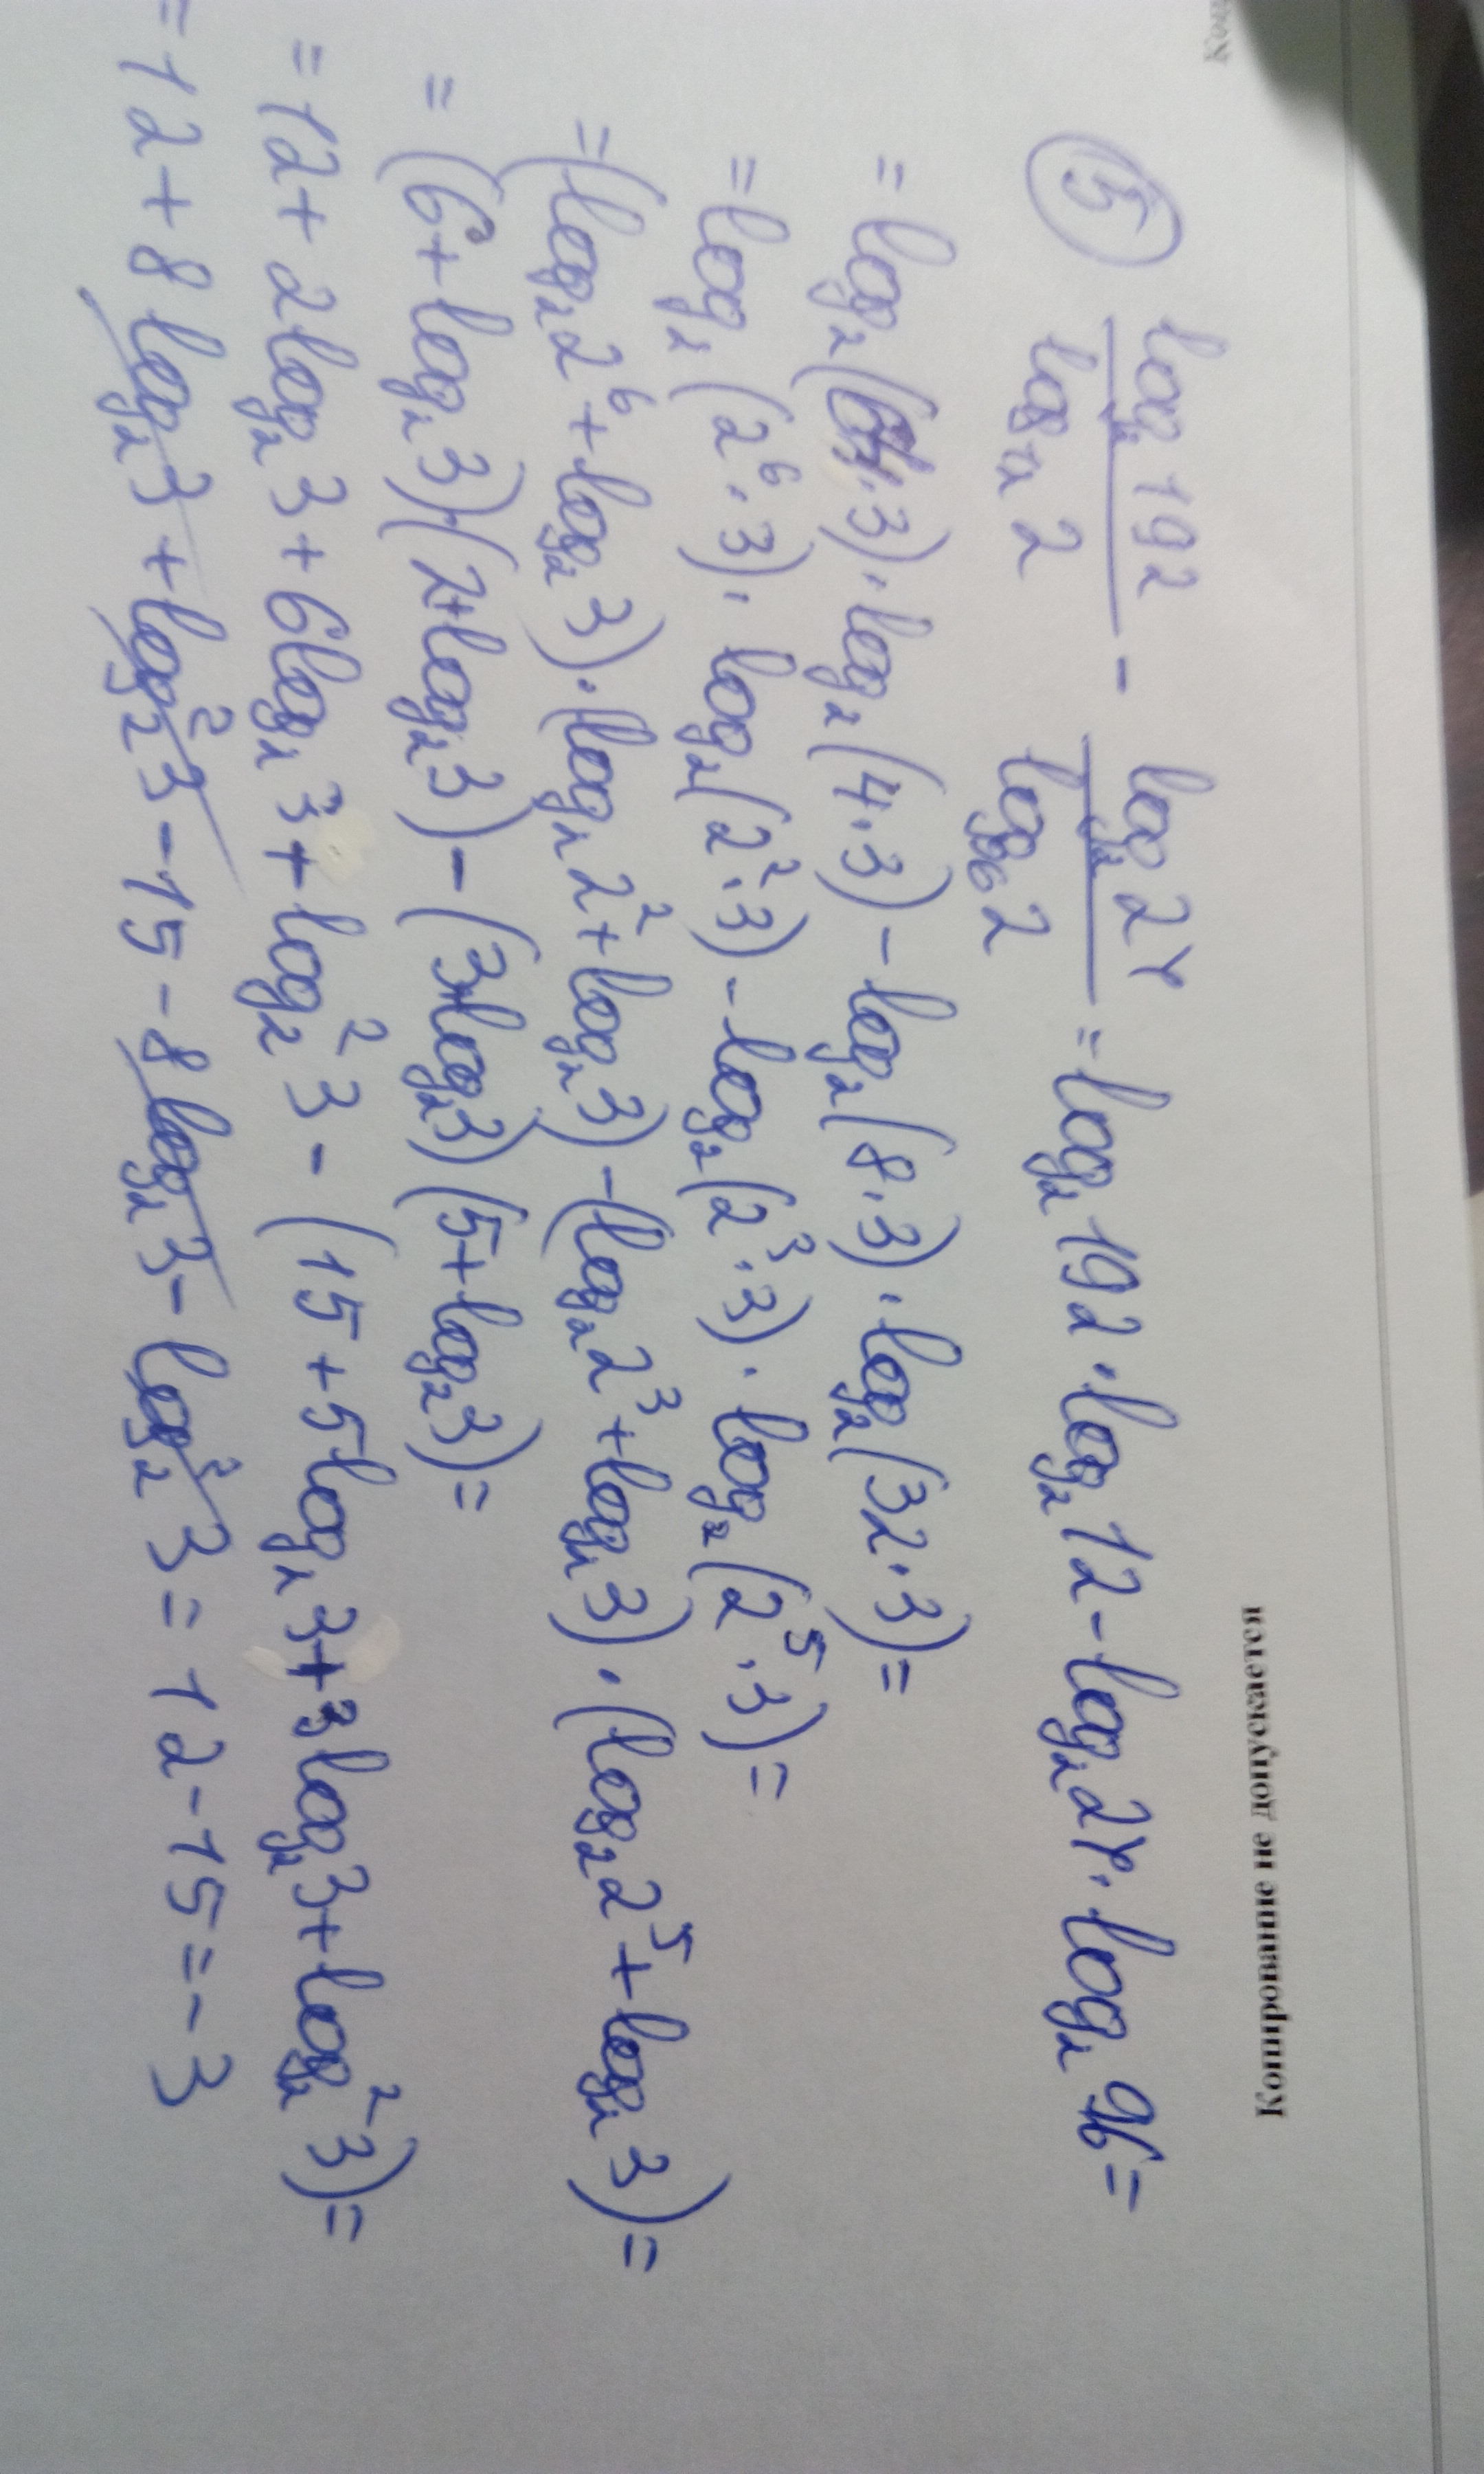 Копирование не допускается
⑤ log₂192 / log₁₂2 - log₂24 / log₉₆2 = log₂192 · log₂12 - log₂24 · log₂96 =
= log₂(64·3) · log₂(4·3) - log₂(8·3) · log₂(32·3) =
= log₂(2⁶·3) · log₂(2²·3) - log₂(2³·3) · log₂(2⁵·3) =
= (log₂2⁶ + log₂3) · (log₂2² + log₂3) - (log₂2³ + log₂3) · (log₂2⁵ + log₂3) =
= (6 + log₂3)·(2 + log₂3) - (3 + log₂3)(5 + log₂3) =
= 12 + 2log₂3 + 6log₂3 + log₂²3 - (15 + 5log₂3 + 3log₂3 + log₂²3) =
= 12 + 8log₂3 + log₂²3 - 15 - 8log₂3 - log₂²3 = 12 - 15 = -3